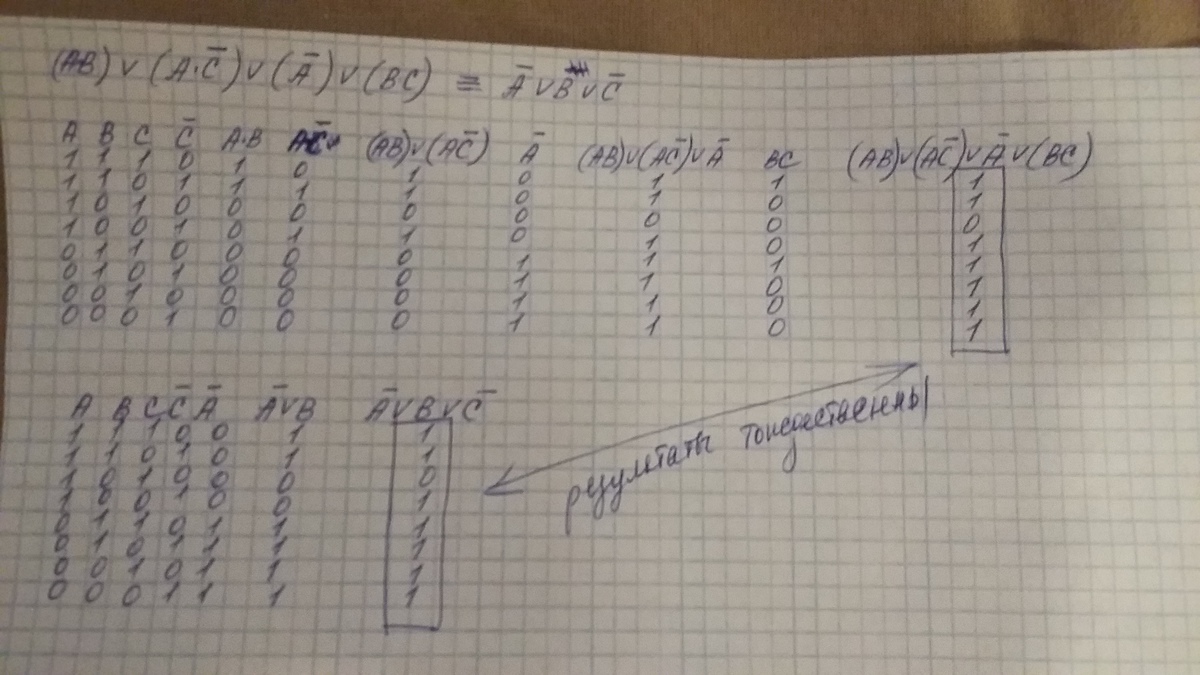 (AB) ∨ (A·C̅) ∨ (A̅) ∨ (BC) ≡ A̅ ∨ B ∨ C̅
A B C C̅ A·B AC̅ (AB)∨(AC̅) A̅ (AB)∨(AC̅)∨A̅ BC (AB)∨(AC̅)∨A̅∨(BC)
1 1 1 0 1 0 1 0 1 1 1
1 1 0 1 1 1 1 0 1 0 1
1 0 1 0 0 0 0 0 0 0 0
1 0 0 1 0 1 1 0 1 0 1
0 1 1 0 0 0 0 1 1 1 1
0 1 0 1 0 0 0 1 1 0 1
0 0 1 0 0 0 0 1 1 0 1
0 0 0 1 0 0 0 1 1 0 1
A B C C̅ A̅ A̅∨B A̅∨B∨C̅
1 1 1 0 0 1 1
1 1 0 1 0 1 1
1 0 1 0 0 0 0
1 0 0 1 0 0 1
0 1 1 0 1 1 1
0 1 0 1 1 1 1
0 0 1 0 1 1 1
0 0 0 1 1 1 1
результаты тождественны